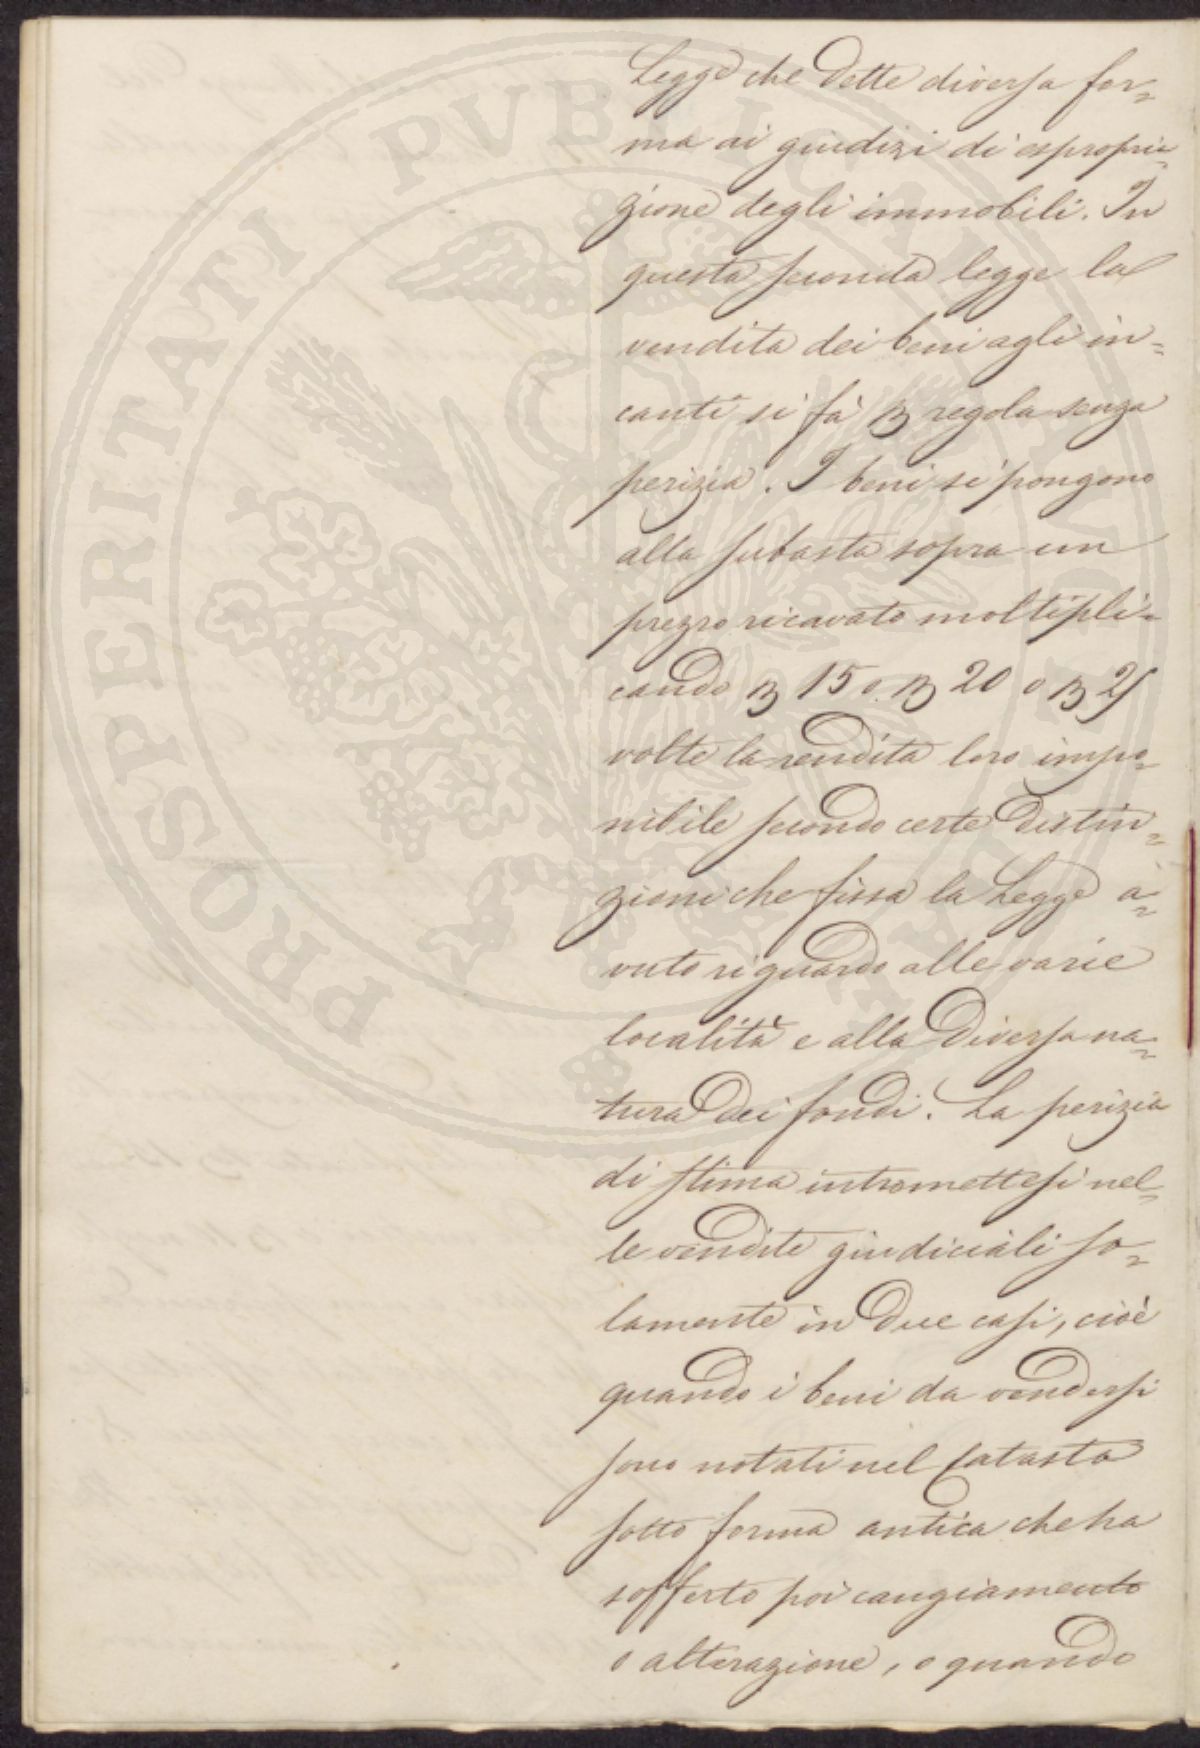 Legge che dette diversa for=
ma ai giudizi di espropria=
zione degli immobili. In
questa seconda legge la
vendita dei beni agli in=
canti si fà p regola senza
perizia. I beni si pongono
alla subasta sopra un
prezzo ricavato moltipli=
cando p 15 o p 20 o p 25
volte la rendita loro impo=
nibile secondo certe distin=
zioni che fissa la Legge a=
vuto riguardo alle varie
località e alla diversa na=
tura dei fondi. La perizia
di stima intromettesi nel=
le vendite giudiciali so=
lamente in due casi, cioè
quando i beni da vendersi
sono notati nel Catasto
sotto forma antica che ha
sofferto poi cangiamento
o alterazione, o quando
PROSPERITATI PUBLICAE